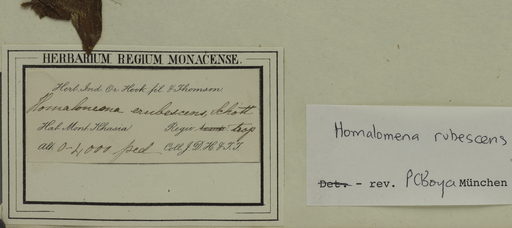 HERBARIUM REGIUM MONACENSE.
Herb. Ind. Or. Hook fil. & Thomson
Homalomena erubescens, Schott
Hab. Mont Khasia Regio temp. trop
Alt. 0-4,000 ped Coll. J.D.H. & T.T.
Homalomena rubescens
Det. - rev. PCBoya München